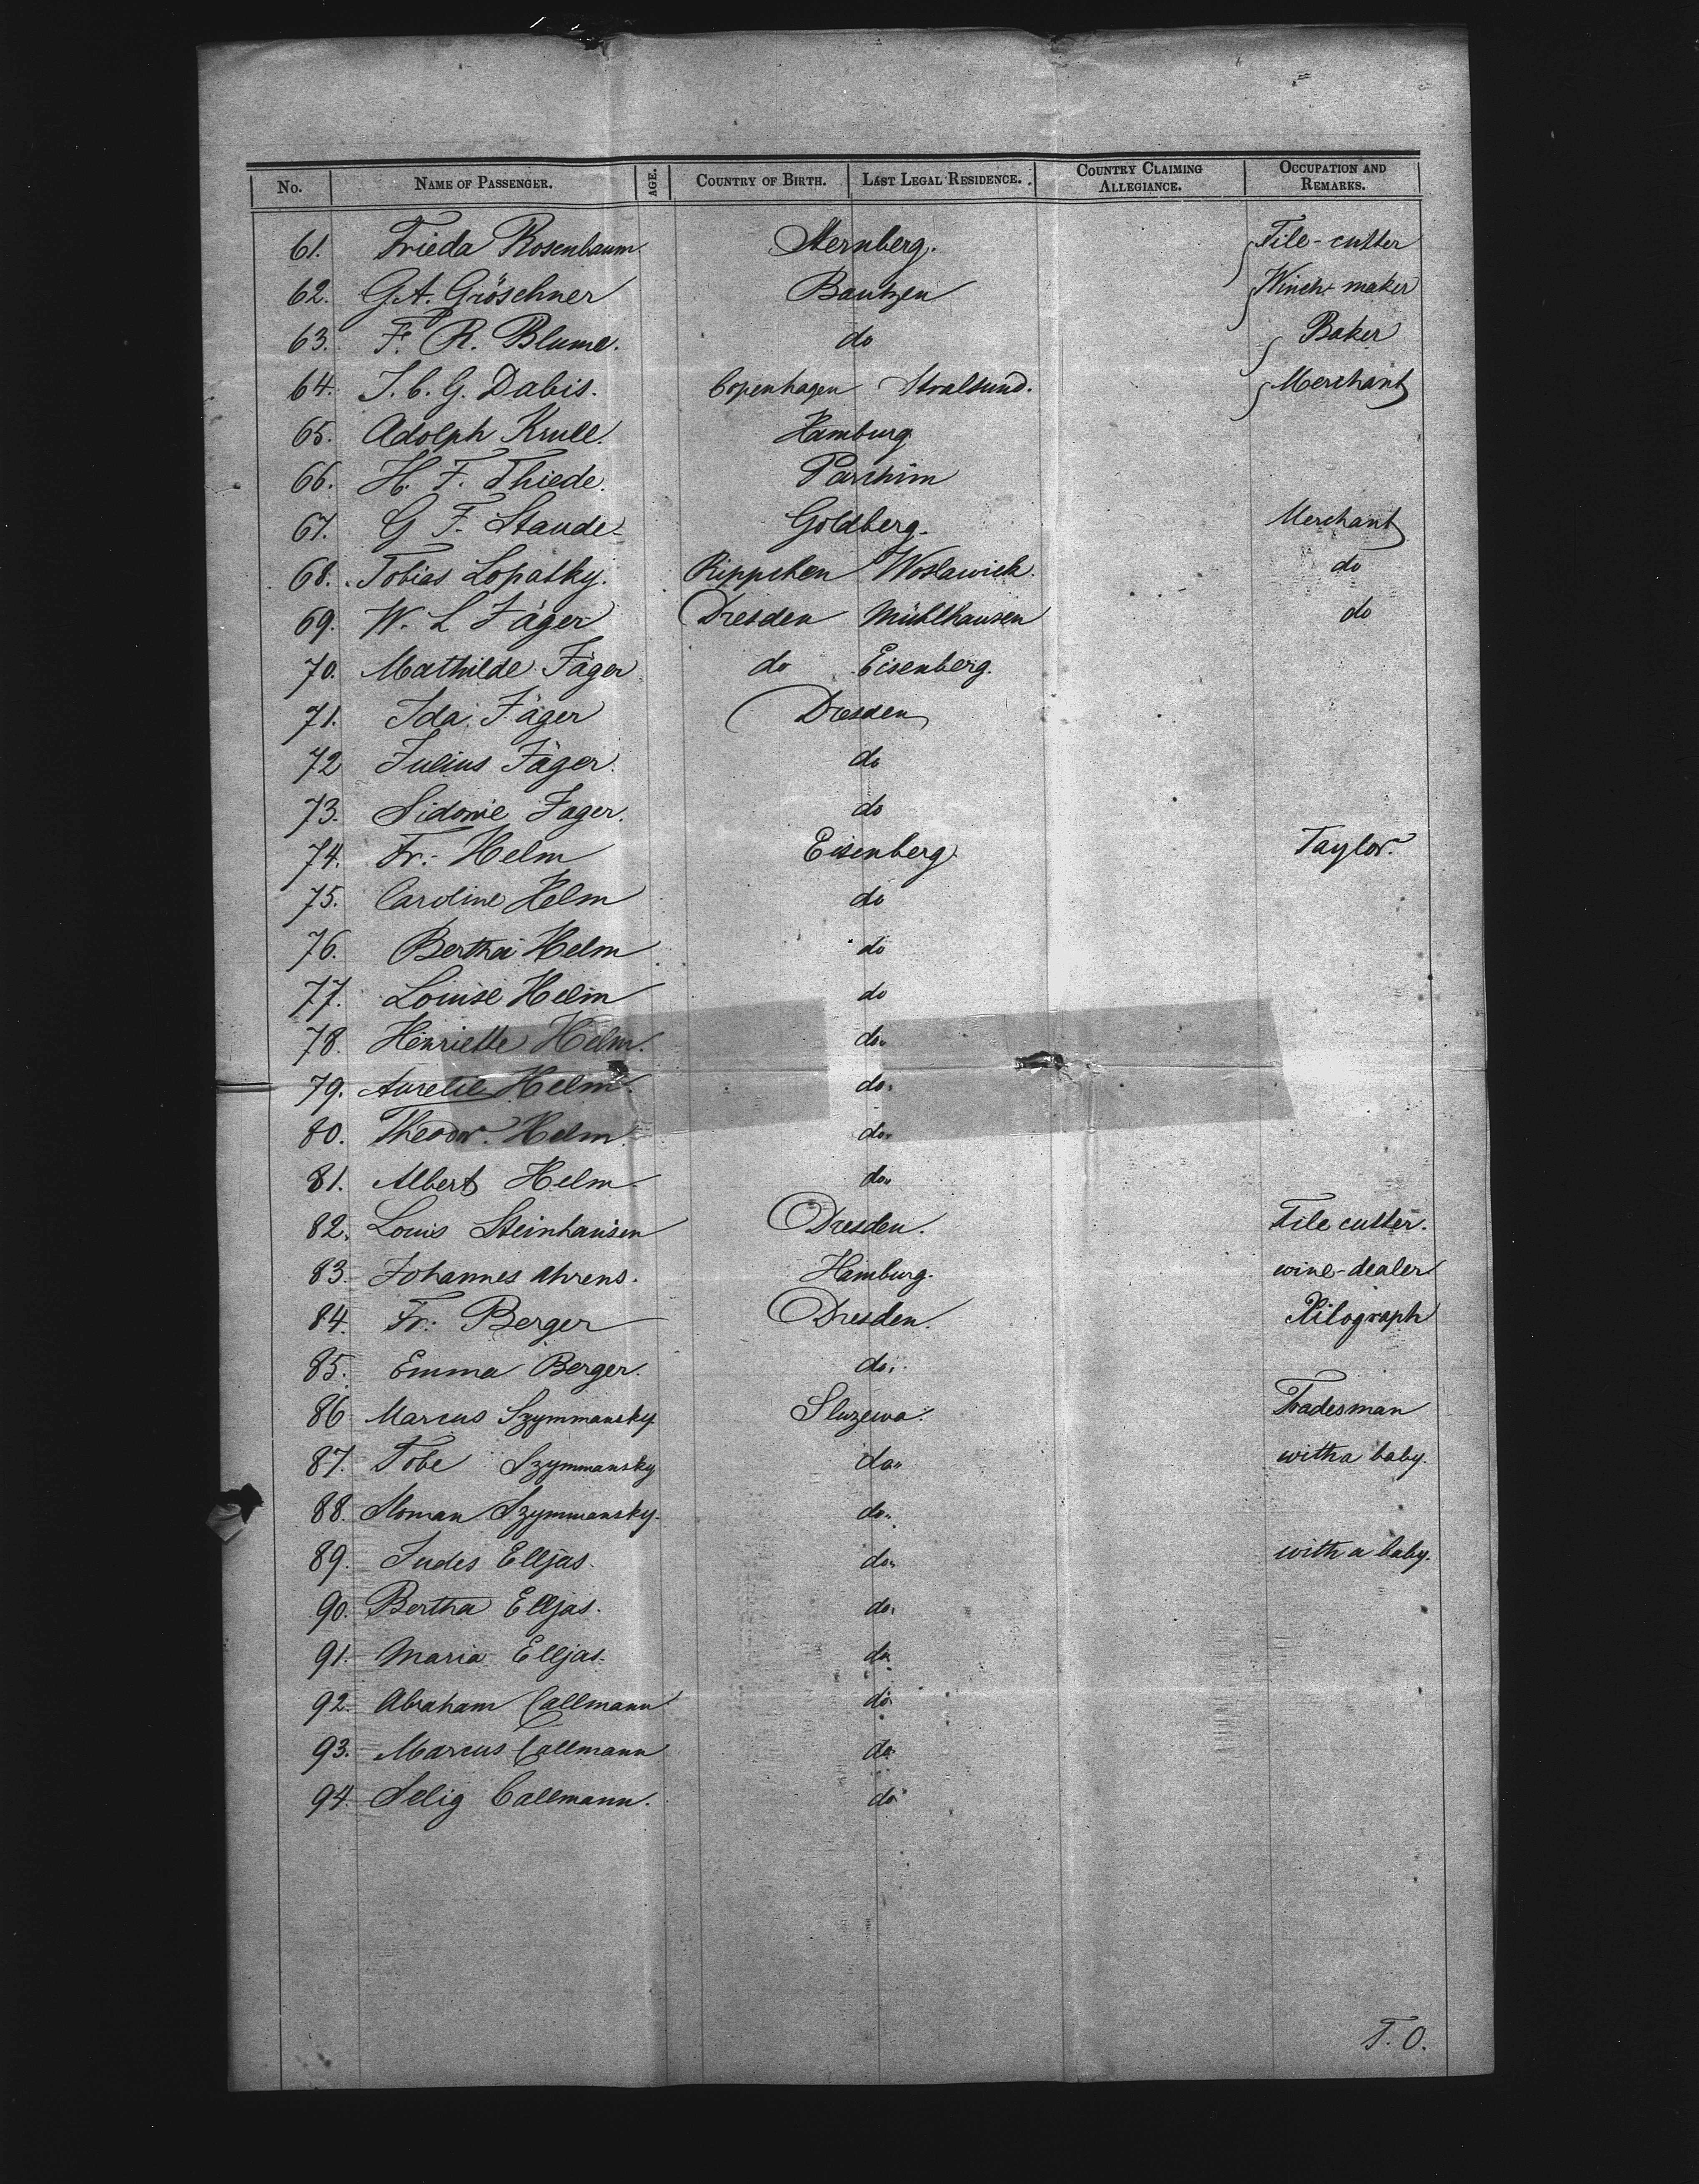 No. NAME OF PASSENGER. AGE. COUNTRY OF BIRTH. LAST LEGAL RESIDENCE. COUNTRY CLAIMING ALLEGIANCE. OCCUPATION AND REMARKS.
61. Frieda Rosenbaum Sternberg. File-cutter
62. G.A. Gröschner Bautzen maker
63. F. R. Blume. do Baker
64. J. C. G. Dabis. Copenhagen Stralsund. Merchant
65. Adolph Krull. Hamburg
66. H. F. Thiede. Parchim
67. G F. Staude Goldberg. Merchant
68. Tobias Lopatky. Rippchen Woslawick. do
69. W. L Jäger Dresden Mühlhausen do
70. Mathilde Jäger do Eisenberg.
71. Ida Jäger Dresden
72 Julius Jäger. do
73. Sidonie Jager. do
74. Fr. Helm Eisenberg. Taylor.
75. Caroline Helm do
76. Bertha Helm do
77. Louise Helm do
78. Henriette Helm. do
79. Aurelie Helm. do.
80. Theodor. Helm. do
81. Albert Helm. do
82. Louis Steinhausen Dresden. File cutter.
83. Johannes Ahrens. Hamburg. wine-dealer
84. Fr. Berger Dresden. Xilograph
85. Emma Berger. do.
86 Marcus Szymmansky Sluzewa. Tradesman
87. Tobe Szymmansky do with a baby.
88. Sloman Szymmansky. do
89. Judes Elljas. do with a baby.
90. Bertha Elljas. do.
91. Maria Elljas. do
92. Abraham Callmann do
93. Marcus Callmann do
94. Selig Callmann. do
T. O.